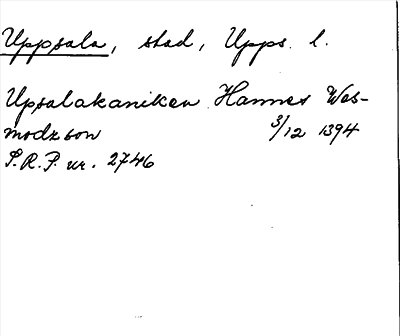 Uppsala, stad, Upps. l.
Upsalakaniken Hannes Wes-
modzson 3/12 1394
S.R.P. nr. 2746